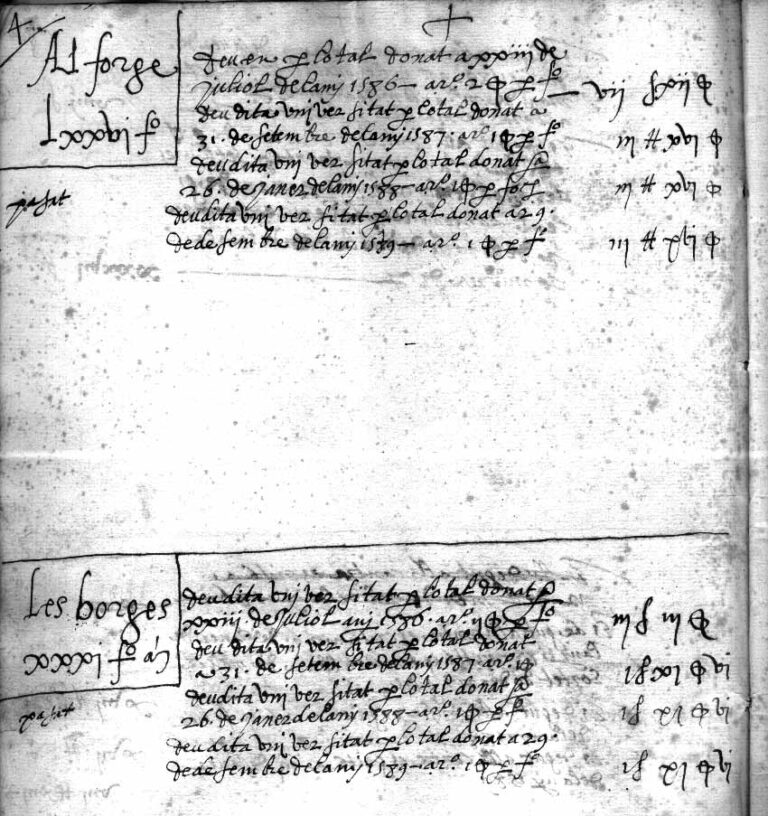 4
Alforge
Lxxxvi fo
pagat
deuen per lo tal donat a xxiii de
juliol de lani 1586 — a ro. 2 φ per fo — vii φ
deu dita vniversitat per lo tal donat a
31 · de setembre de lani 1587 · a ro. 1 φ per fo iii ℔ xvi φ
deu dita vniversitat per lo tal donat
26 · de Janer de lani 1588 — a ro. 1 φ per foch iii ℔ xvi φ
deu dita vniversitat per lo tal donat a 29 ·
de desembre de lani — a ro. 1 φ per fo iii ℔ xvi φ
Les borges
xxxxi fo
pagat
deu dita vniversitat per lo tal donat per
xxiii · de Juliol ani 1586 · a ro. ii φ per fo iii iii φ
deu dita vniversitat per lo tal donat
a 31 · de setembre de lani 1587 · a ro. 1 φ i xi φ vi
deu dita vniversitat per lo tal donat
26 · de Janer de lani 1588 — a ro. 1 φ per fo i xi φ vi
deu dita vniversitat per lo tal donat a 29 ·
de desembre de lani 1589 — a ro. 1 φ per fo i xi φ vi